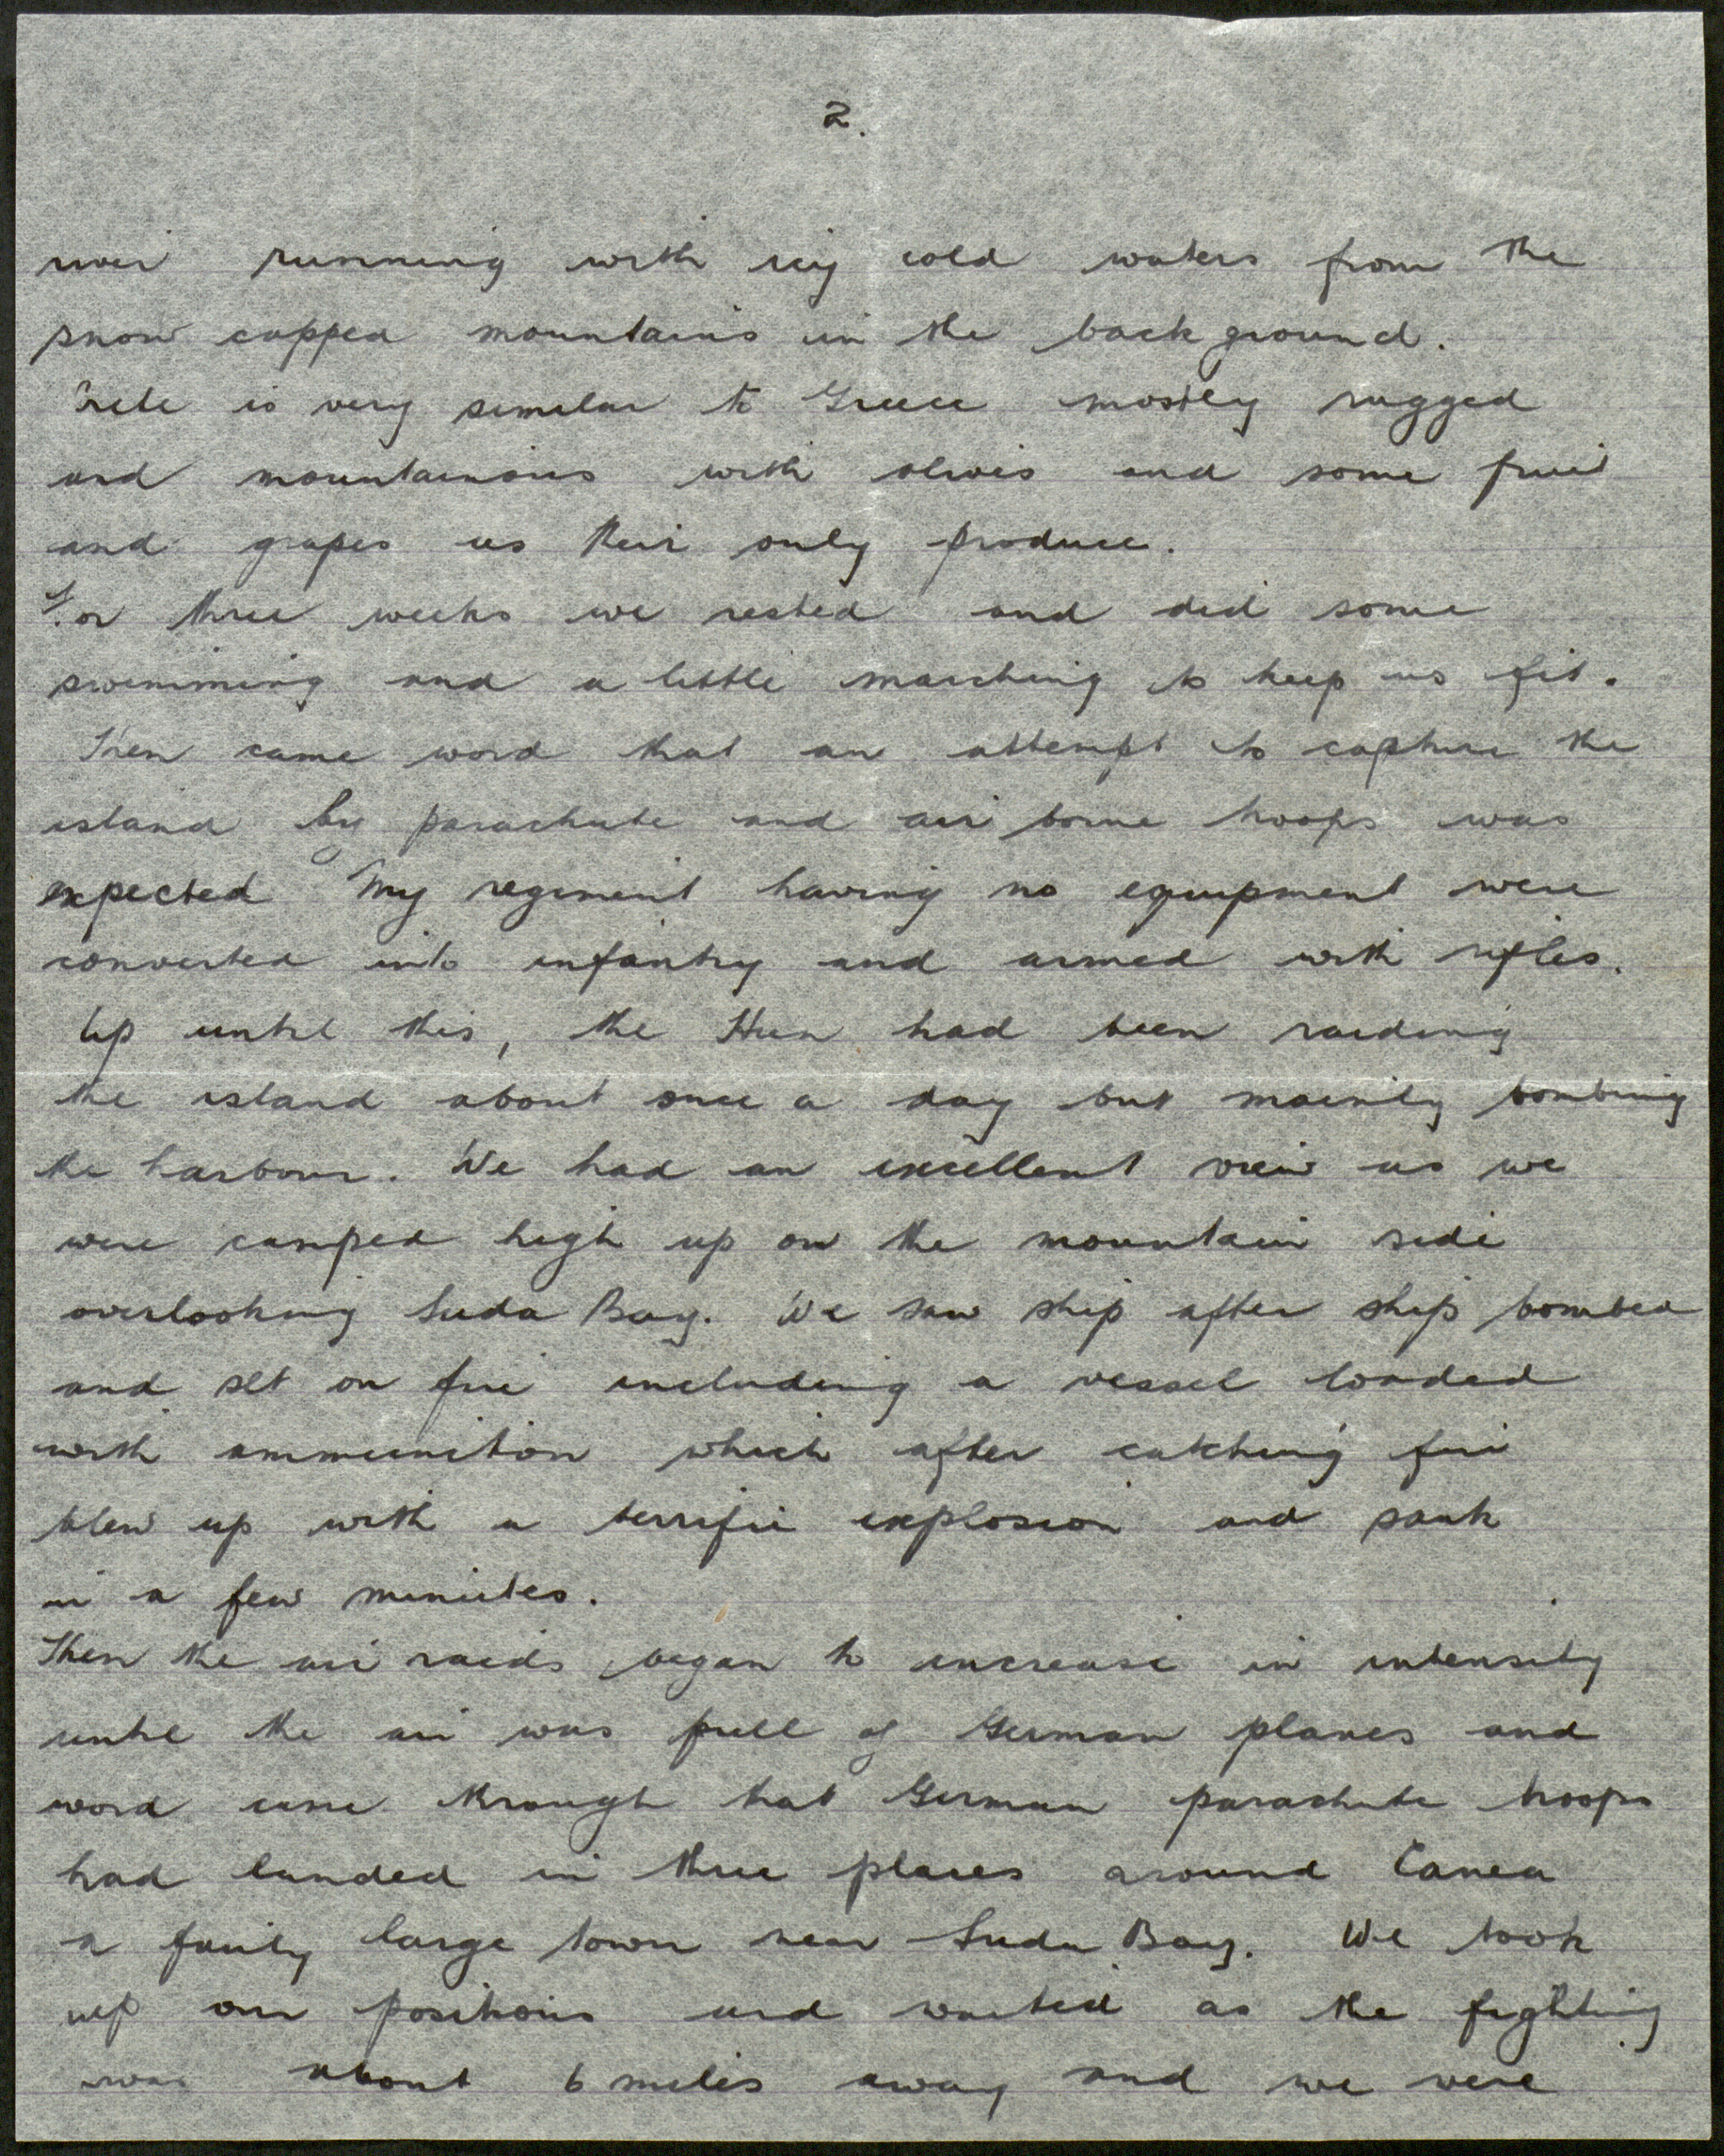 2.
river running with icy cold waters from the
snow capped mountains in the back ground.
Crete is very similar to Greece mostly rugged
and mountainous with olives and some fruit
and grapes as their only produce.
For three weeks we rested and did some
swimming and a little marching to keep us fit.
Then came word that an attempt to capture the
island by parachute and air borne troops was
expected My regiment having no equipment were
converted into infantry and armed with rifles.
Up until this, the Hun had been raiding
the island about once a day but mainly bombing
the harbour. We had an excellent view as we
were camped high up on the mountain side
overlooking Suda Bay. We saw ship after ship bombed
and set on fire including a vessel loaded
with ammunition which after catching fire
blew up with a terrific explosion and sank
in a few minutes.
Then the air raids began to increase in intensity
until the air was full of German planes and
word came through that German parachute troops
had landed in three places around Canea
a fairly large town near Suda Bay. We took
up our positions and waited as the fighting
was about 6 miles away and we were